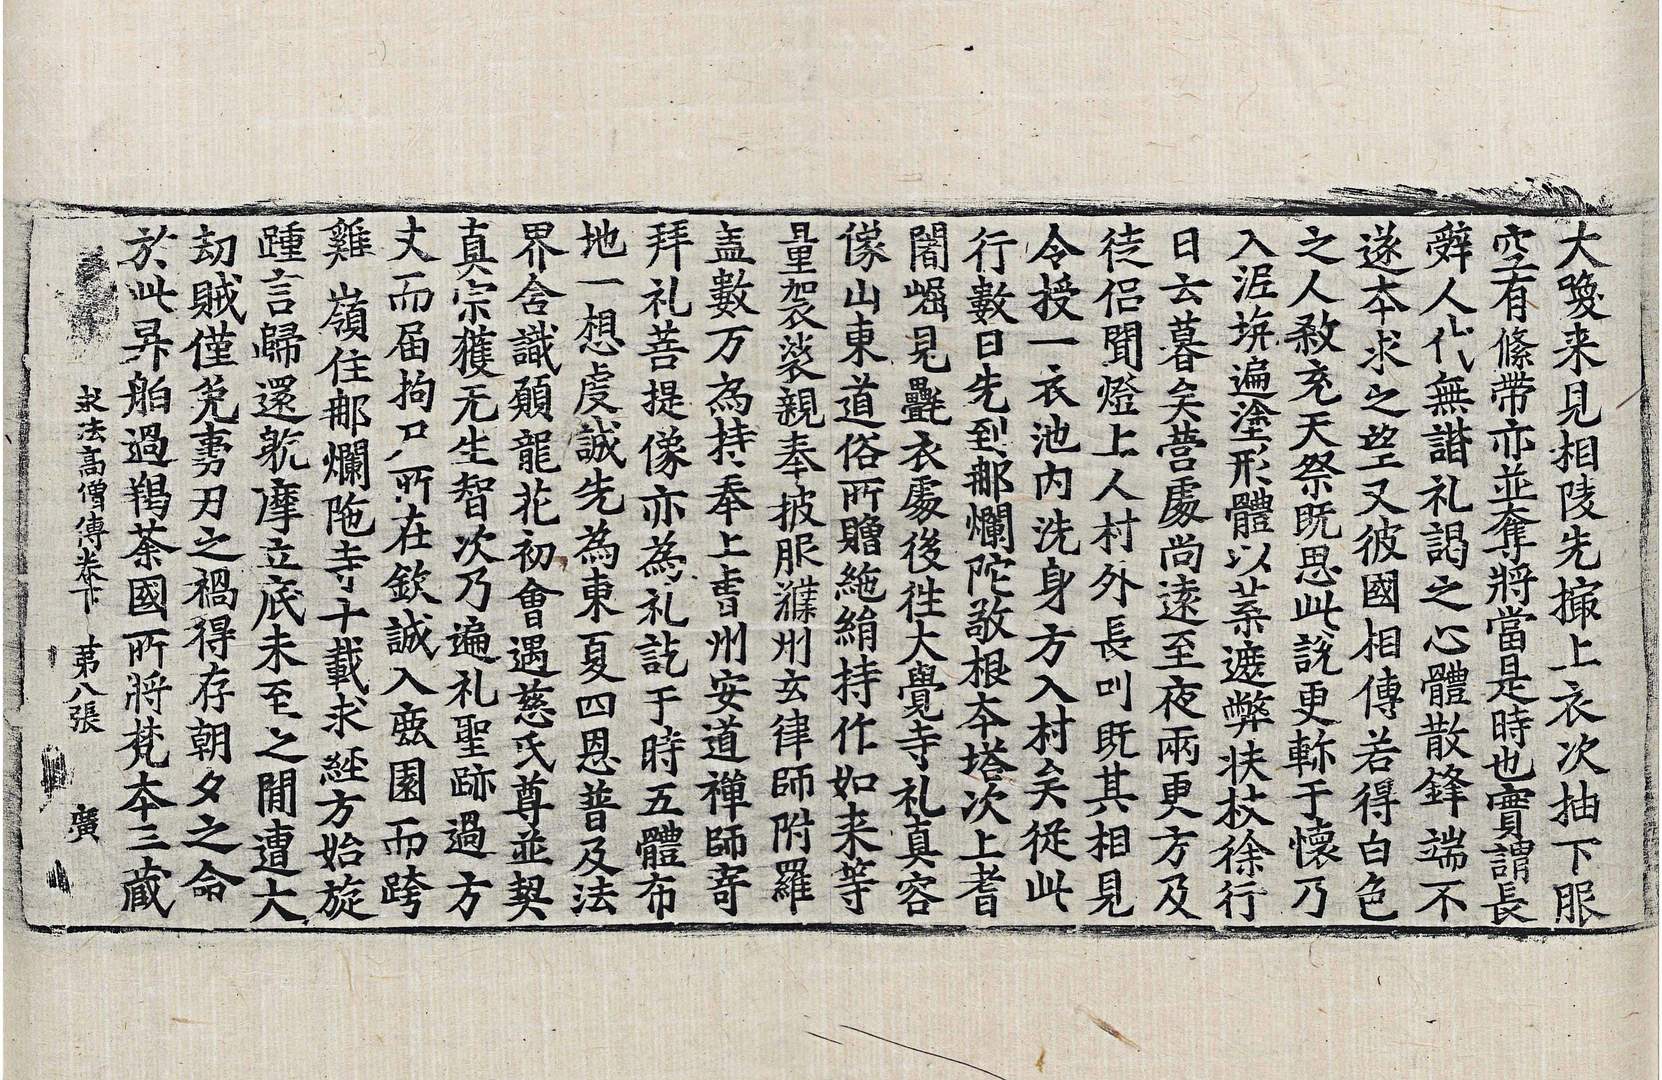 大喚来見相陵先撮上衣次抽下服
空有絛帶亦並奪將當是時也實謂長
辭人代無諧礼謁之心體散鋒端不
遂本求之望又彼國相傳若得白色
之人煞充天祭既思此說更軫于懷乃
入泥坑遍塗形體以葉遮弊扶杖徐行
日云暮矣營處尚遠至夜兩更方及
徒侶聞燈上人村外長叫既其相見
令授一衣池内洗身方入村矣從此
行數日先到那爛陀敬根本塔次上耆
闍崛見疊衣處後往大覺寺礼真容
像山東道俗所贈絁絹持作如来等
量袈裟親奉披服濮州玄律師附羅
盖數万為持奉上曺州安道禅師寄
拜礼菩提像亦為礼訖于時五體布
地一想虔誠先為東夏四恩普及法
界含識願龍花初會遇慈氏尊並契
真宗獲无生智次乃遍礼聖跡過方
丈而届拘尸所在欽誠入鹿園而跨
雞嶺住那爛陁寺十載求經方始旋
踵言歸還躭摩立底未至之間遭大
劫賊僅免剚刃之禍得存朝夕之命
於此昇舶過羯荼國所將梵本三藏
求法高僧傳卷下 第八張 廣